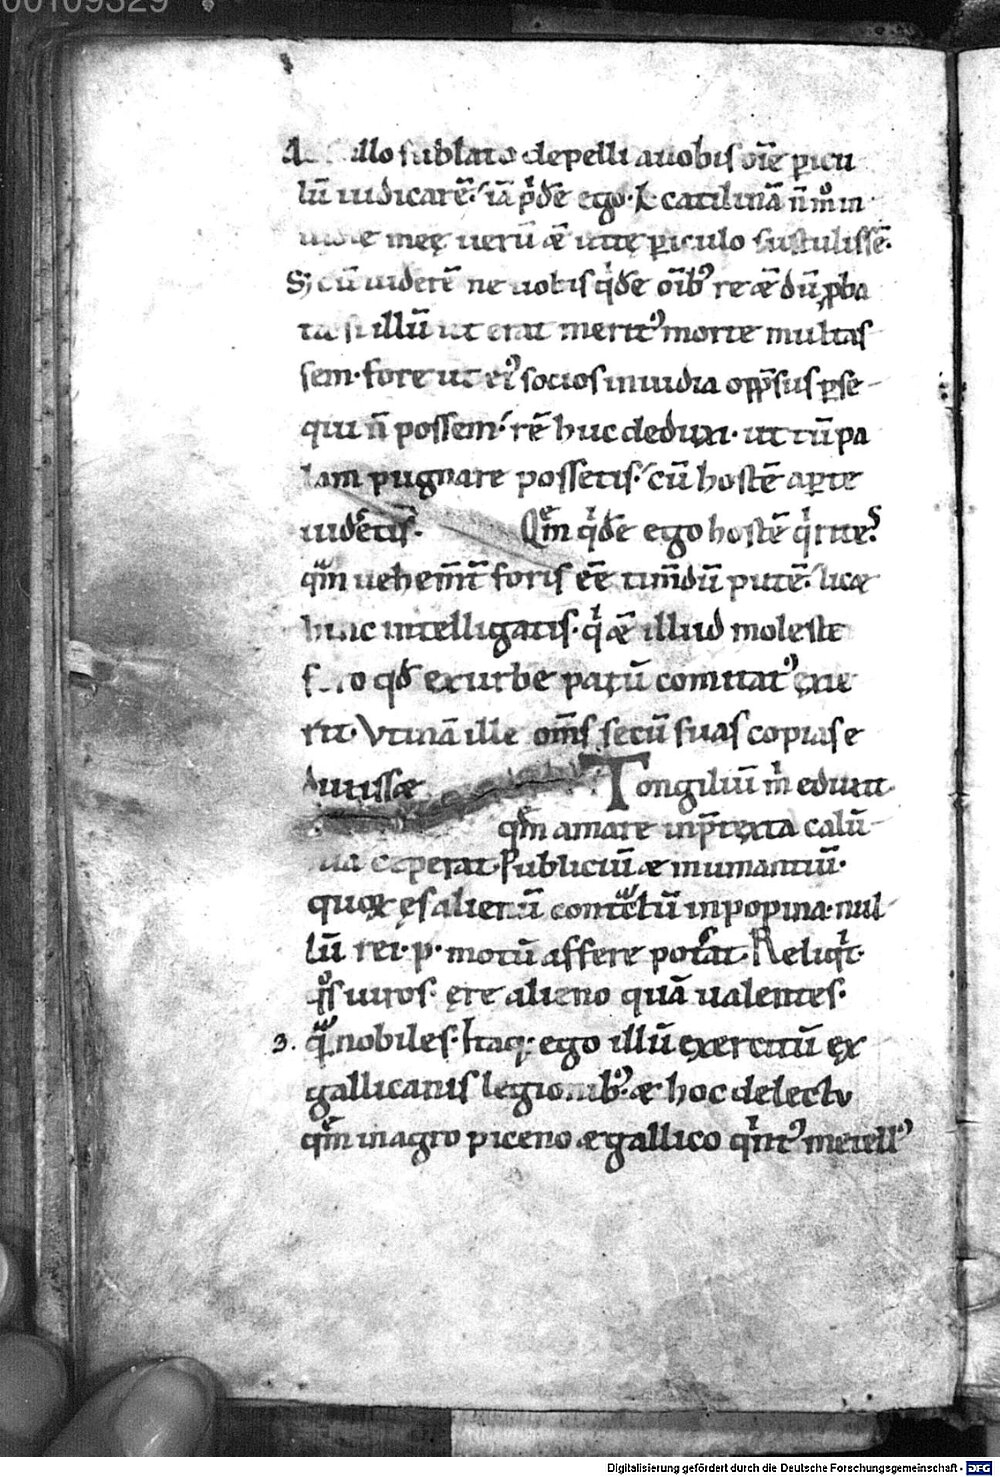 00109329
illo sublato depelli a uobis om̄e ꝑicu
lū iudicarē. iā pͥdē ego. L. catilinā n̄ mͦ in
meę uerū æ uitę ꝑiculo sustulissē.
S; cū uiderē ne uobis qͥdē oīb᾿ re æ dū ꝓba
ta si illū ut erat merit᾿ morte multas
sem. fore ut ei᾿ socios inuidia opp̄sus ꝑse-
qui n̄ possem. rē huc deduxi. ut tū pa
lam pugnare possetis. cū hostē aꝑte
uidetis. Qm̄ qͥdē ego hostē qͥrites
qͣm uehem̄t̄ foris eē tim̄dū putē. licæ
hinc intelligatis. qͥ æ illud moleste
fero qd̄ ex urbe parū comitat᾿ exie
rit. Vtinā ille om̄s secū suas copias e
duxissæ Tongiliū mͥ eduxit
qm̄ amare in p̄texta calū-
nia ceperat. Publiciū æ munantiū.
quoꝝ ęs alienū cont̄ctū in popina. nul
lū rei. p. motū affere poterat. Reliqͥt.
qͦs uiros. ęre alieno quā ualentes.
3. qͣ nobiles. Itaq; ego illū exercitū ex
gallicanis legionib᾿. æ hoc delectu
qm̄ in agro piceno æ gallico qͥnt᾿ metell᾿
Digitalisierung gefördert durch die Deutsche Forschungsgemeinschaft - DFG